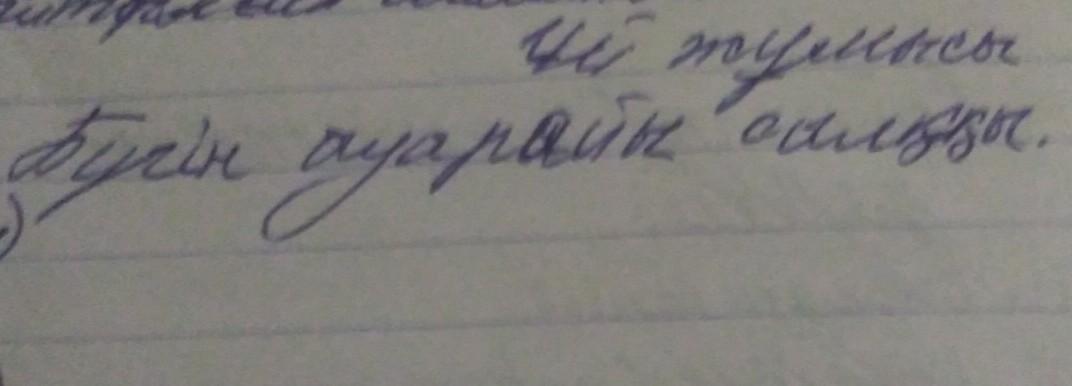 Үй жумысы
Бүгін ауарайы салққы.